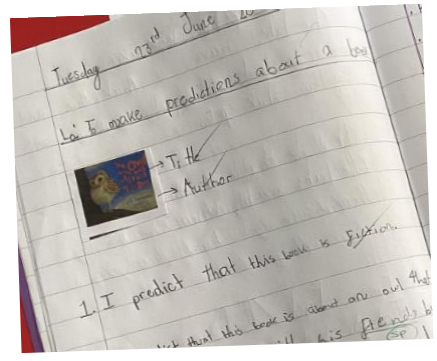 Tuesday 23rd June 20
L.o: To make predictions about a boo
Title
Author
1. I predict that this book is fiction.
ict that this book is about an owl that
his fiends b
sp